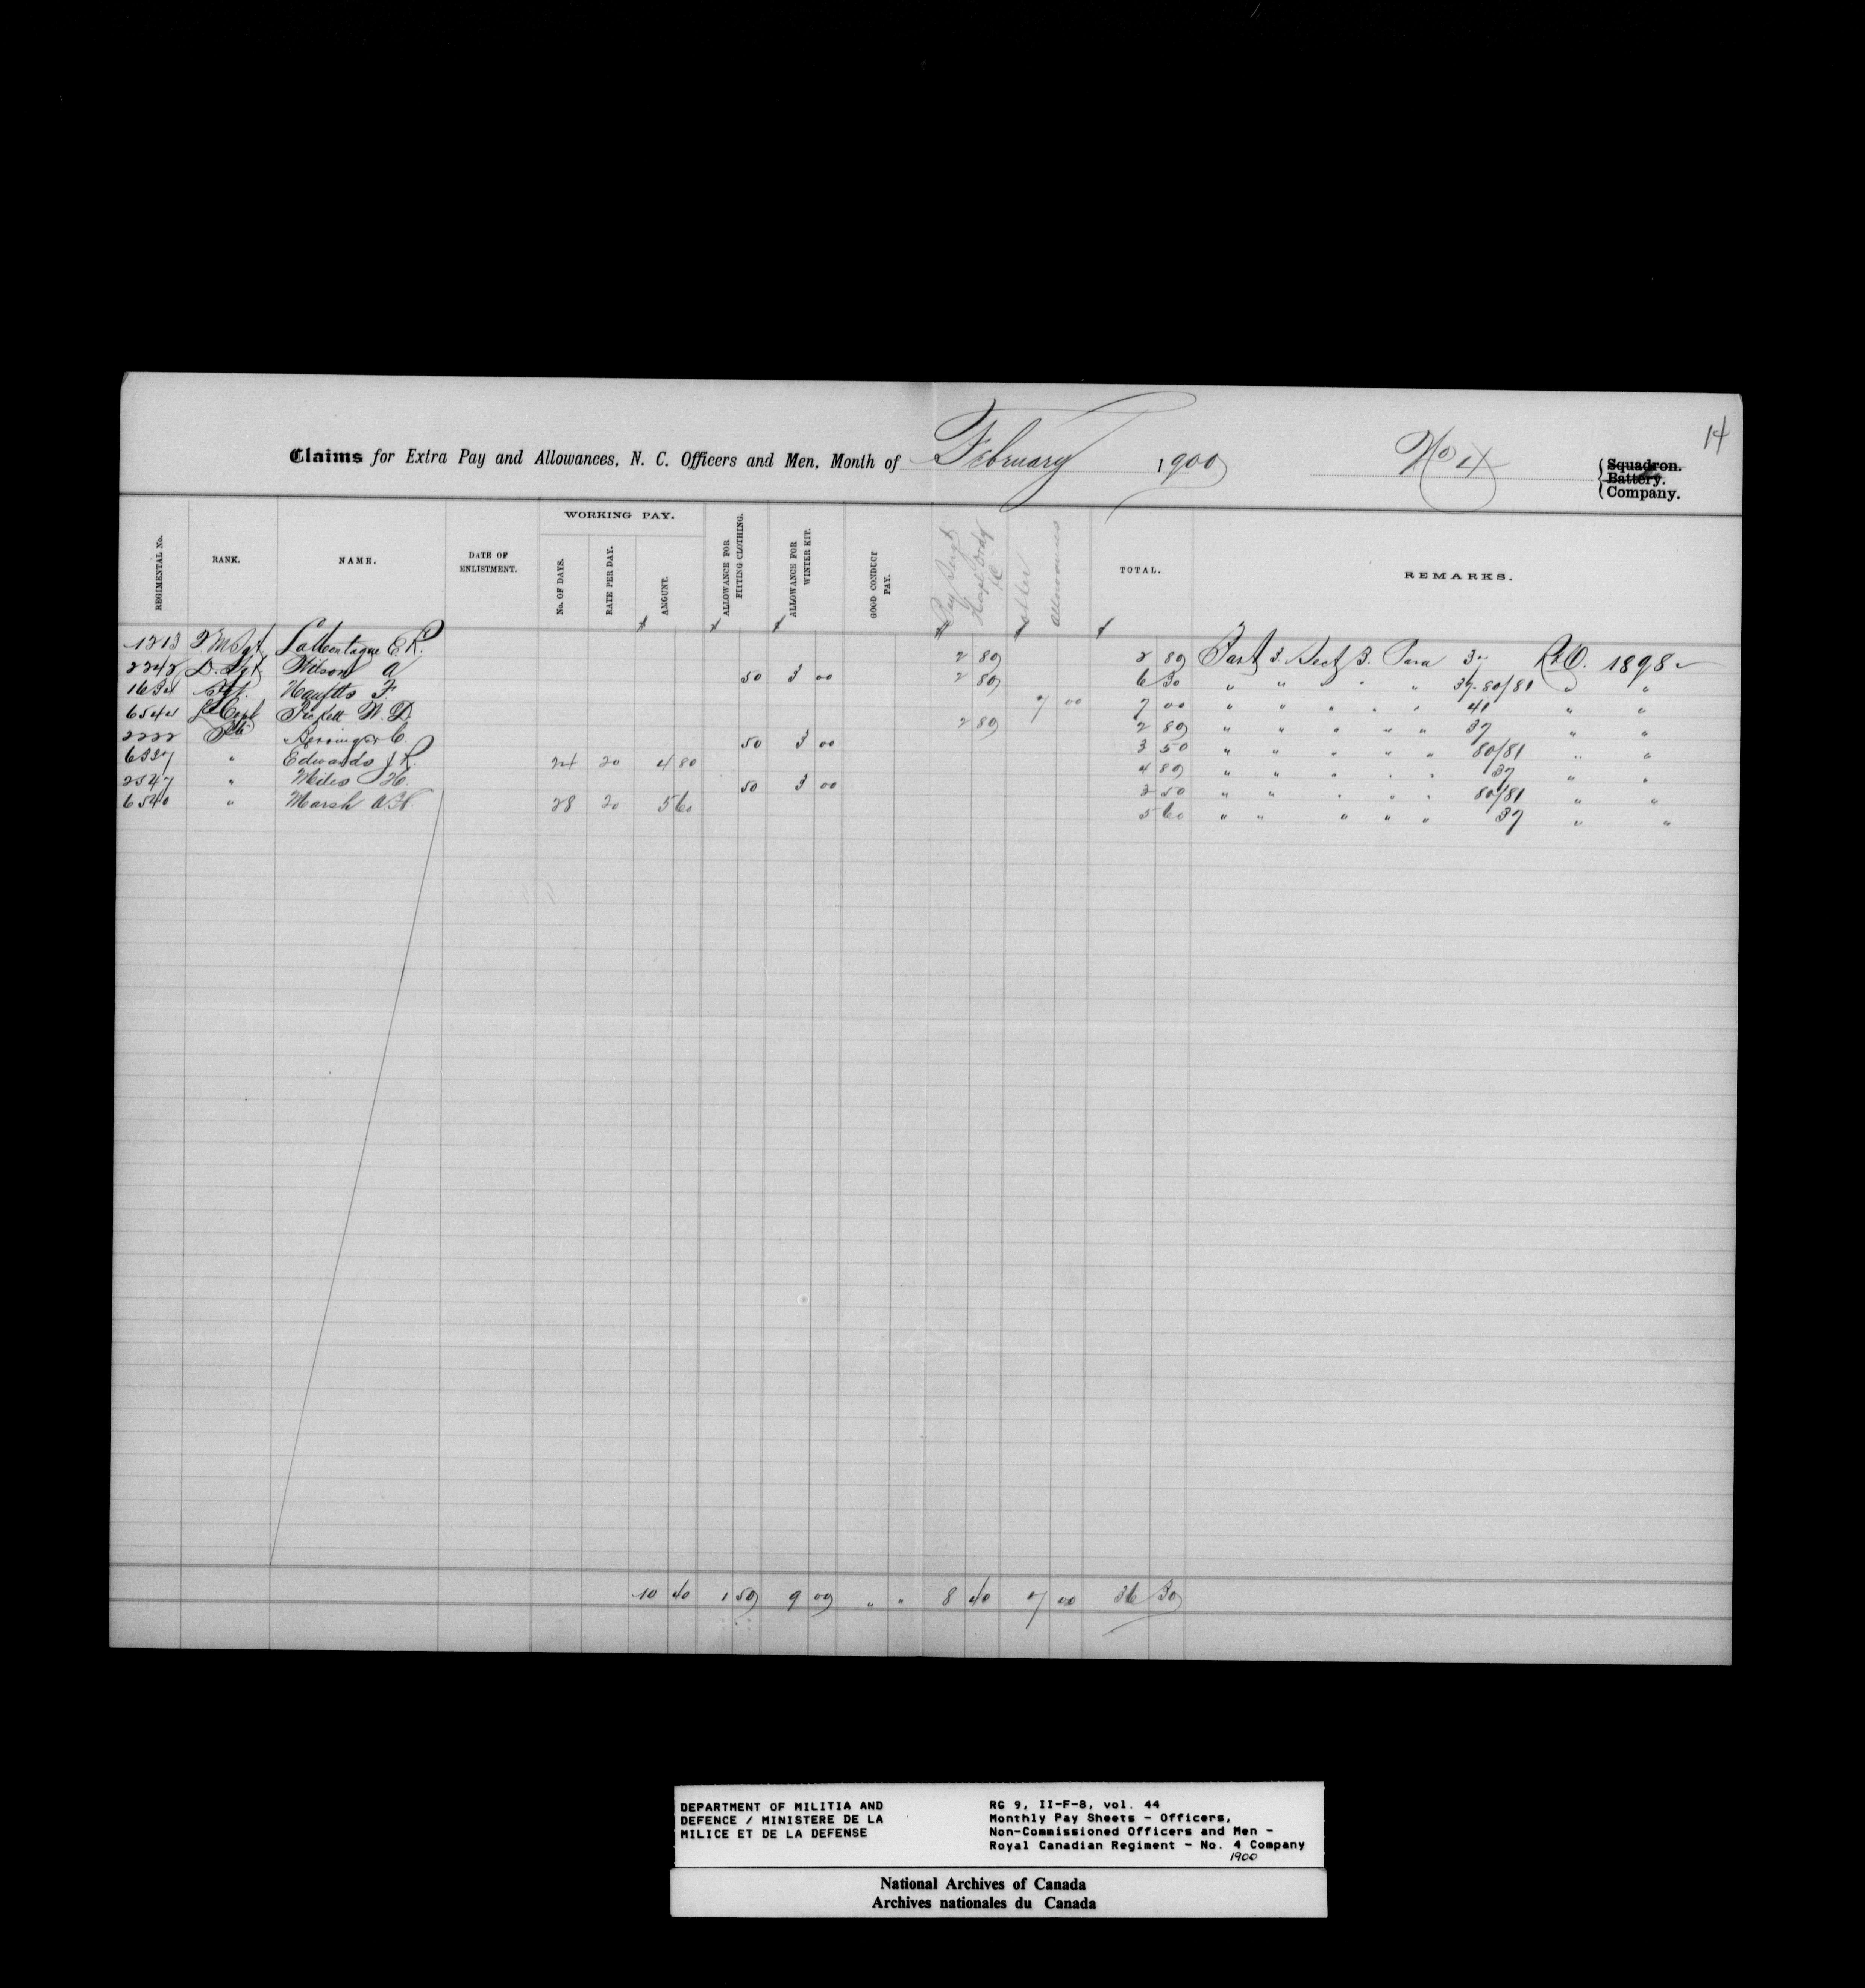 14
Claims for Extra Pay and Allowances, N. C. Officers and Men, Month of February 1900 No 4 Squadron. Battery. Company.
WORKING PAY.
REGIMENTAL No. RANK. NAME. DATE OF ENLISTMENT. No. OF DAYS. RATE PER DAY. AMOUNT. ALLOWANCE FOR FITTING CLOTHING. ALLOWANCE FOR WINTER KIT. GOOD CONDUCT PAY. Pay Sergt other allowances TOTAL. REMARKS.
$ $ $ $ $ $
1213 LaMontagne E. R. 2 80 2 80 Part 3 Sect 3. Para 37 R&O. 1898
2242 Wilson A 50 3 00 2 80 6 30 " " " " 37-80/81 " "
F. 7 00 7 00 " " " " " 41 " "
Pickett W. D. 2 80 2 80 " " " " " 37 " "
2222 Pte C. 50 3 00 3 50 " " " " " 80/81 " "
6337 " Edwards J. R. 24 20 4 80 4 80 " " " " " 37 " "
2347 " Miles H. 50 3 00 3 50 " " " " " 80/81 " "
6540 " Marsh 28 20 5 60 5 60 " " " " " 37 " "
10 40 1 50 9 00 " " 8 40 7 00 36 30
DEPARTMENT OF MILITIA AND
DEFENCE / MINISTERE DE LA
MILICE ET DE LA DEFENSE
RG 9, II-F-8, vol. 44
Monthly Pay Sheets - Officers,
Non-Commissioned Officers and Men -
Royal Canadian Regiment - No. 4 Company
1900
National Archives of Canada
Archives nationales du Canada